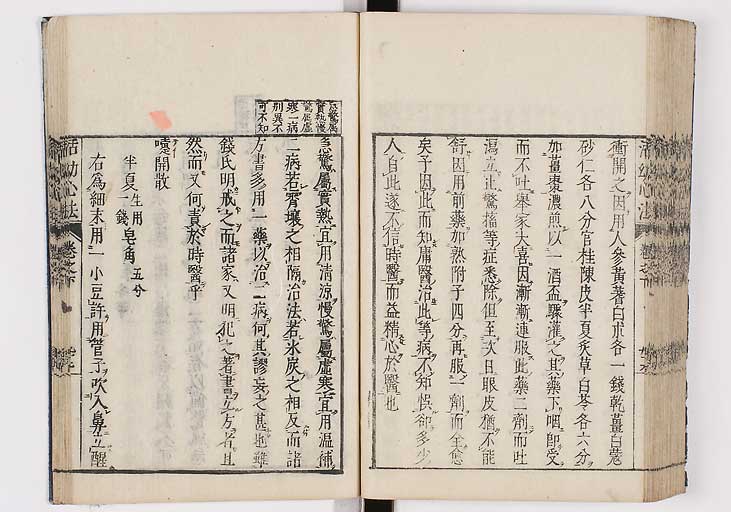 衝開之因用人參黃蓍白朮各一錢乾薑白蔻
砂仁各八分官桂陳皮半夏炙草白苓各六分
如薑棗濃煎以一酒盃驟灌之其藥下咽即受
而不吐舉家大喜因漸漸連服此藥二劑而吐
瀉立止驚搐等症悉除但至次日眼皮猶不能
舒因用前藥加熟附子四分再服一劑而全愈
矣予因此而知庸醫治此等病不知悞卻多少
人自此遂不信時醫而益精心於醫也
活幼心法
卷之下
急驚屬
實熱慢
驚屬虛
寒二病
判異不
可不知
急驚屬實熱宜用清涼慢驚屬虛寒宜用溫補
二病若霄壤之相隔治法若氷炭之相反而諸
方書多用一藥以治二病何其謬妄之甚也雖
錢氏明戒之而諸家又明犯之著書立方者且
然而又何責於時醫乎
嚏開散
半夏一錢生用皂角五分
右為細末用一小豆許用管子吹入鼻立醒
活幼心法
卷之下